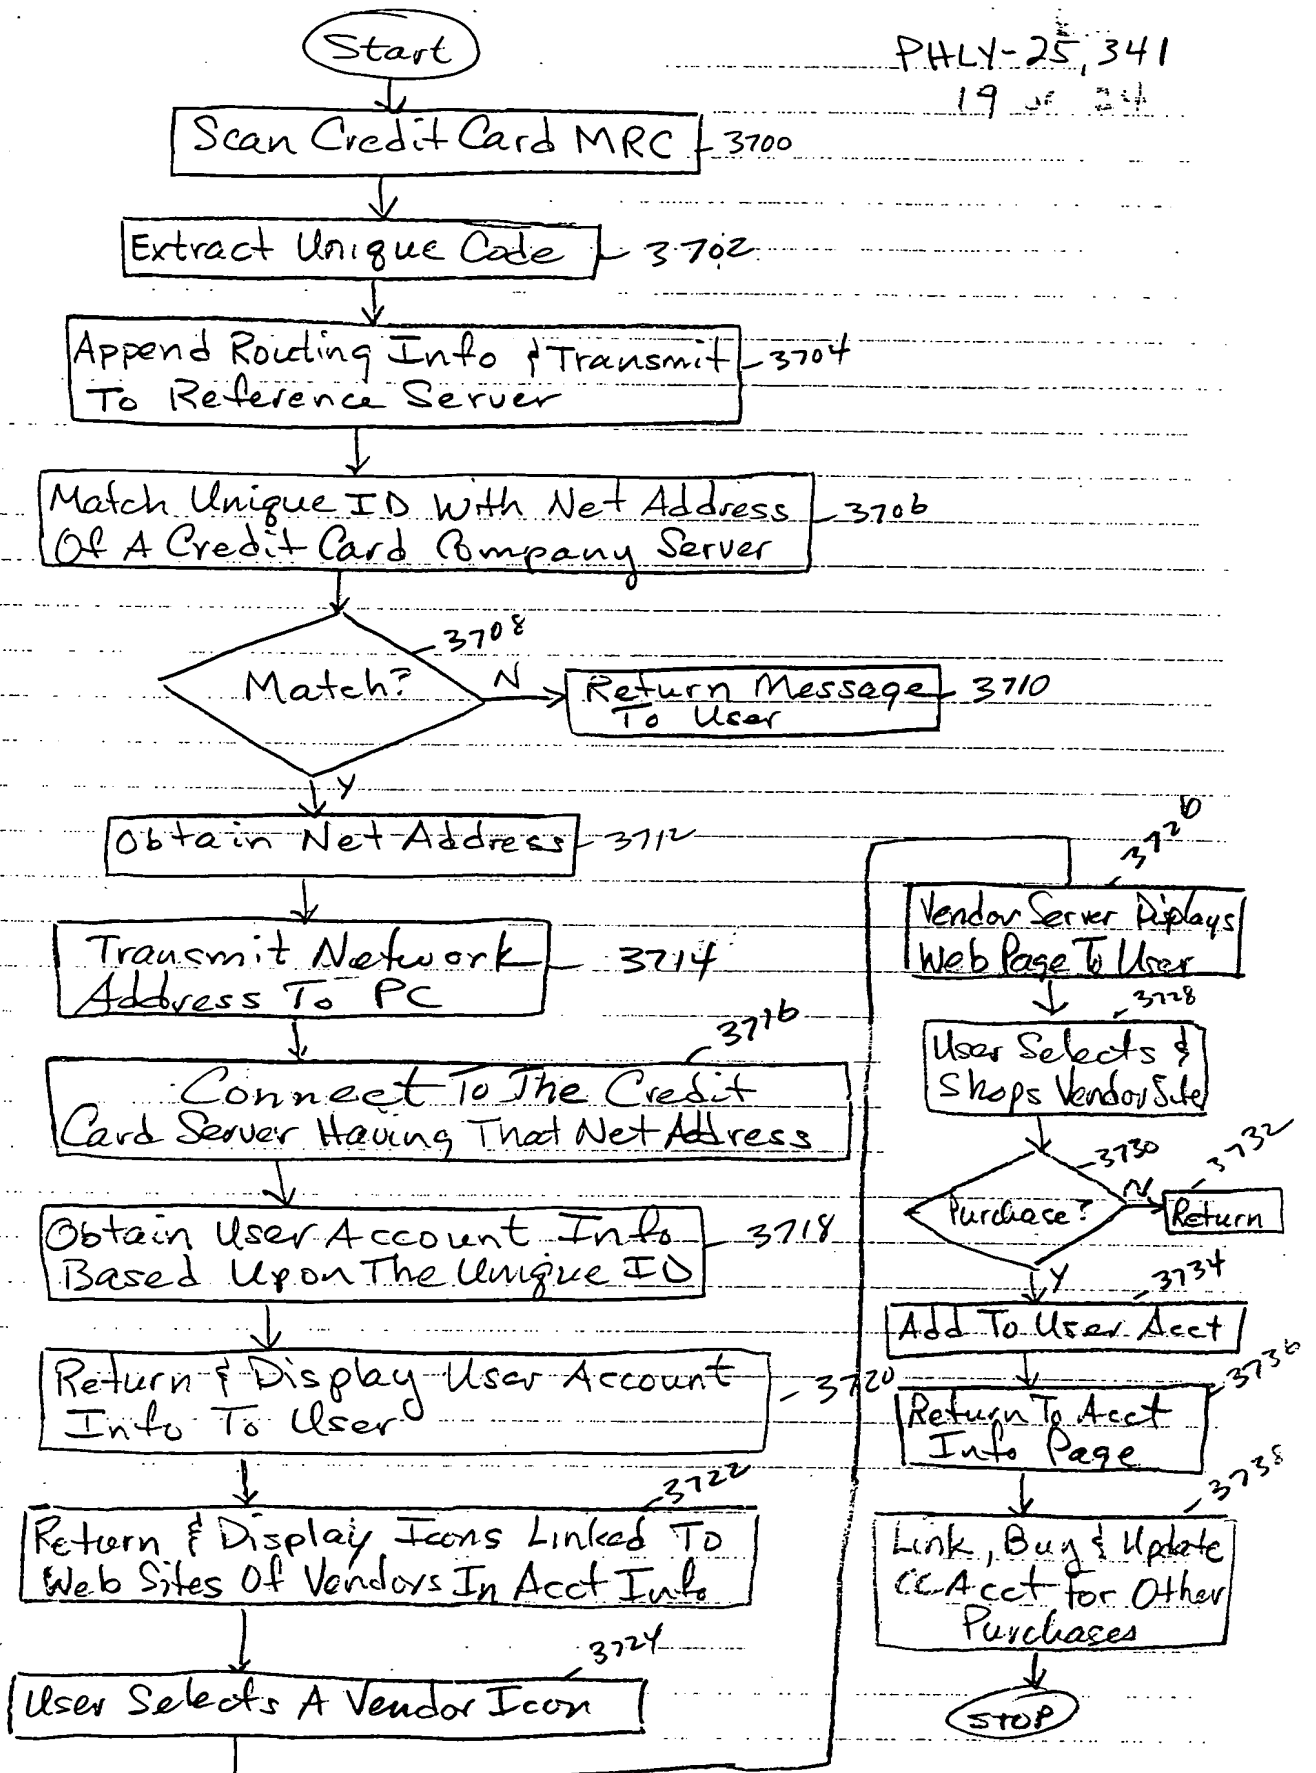 Start
PHLY-25,341
19 of 24
Scan Credit Card MRC
3700
Extract Unique Code
3702
Append Routing Info & Transmit
To Reference Server
3704
Match Unique ID With Net Address
Of A Credit Card Company Server
3706
Match?
3708
N
Return Message
To User
3710
Y
Obtain Net Address
3712
Transmit Network
Address To PC
3714
3716
Connect To The Credit
Card Server Having That Net Address
Obtain User Account Info
Based Upon The Unique ID
3718
Return & Display User Account
Info To User
3720
3722
Return & Display Icons Linked To
Web Sites Of Vendors In Acct Info
3724
User Selects A Vendor Icon
3726
Vendor Server Displays
Web Page To User
3728
User Selects &
Shops Vendor Site
3730
Purchase?
N
3732
Return
Y
3734
Add To User Acct
3736
Return To Acct
Info Page
3738
Link, Buy & Update
CC Acct for Other
Purchases
STOP